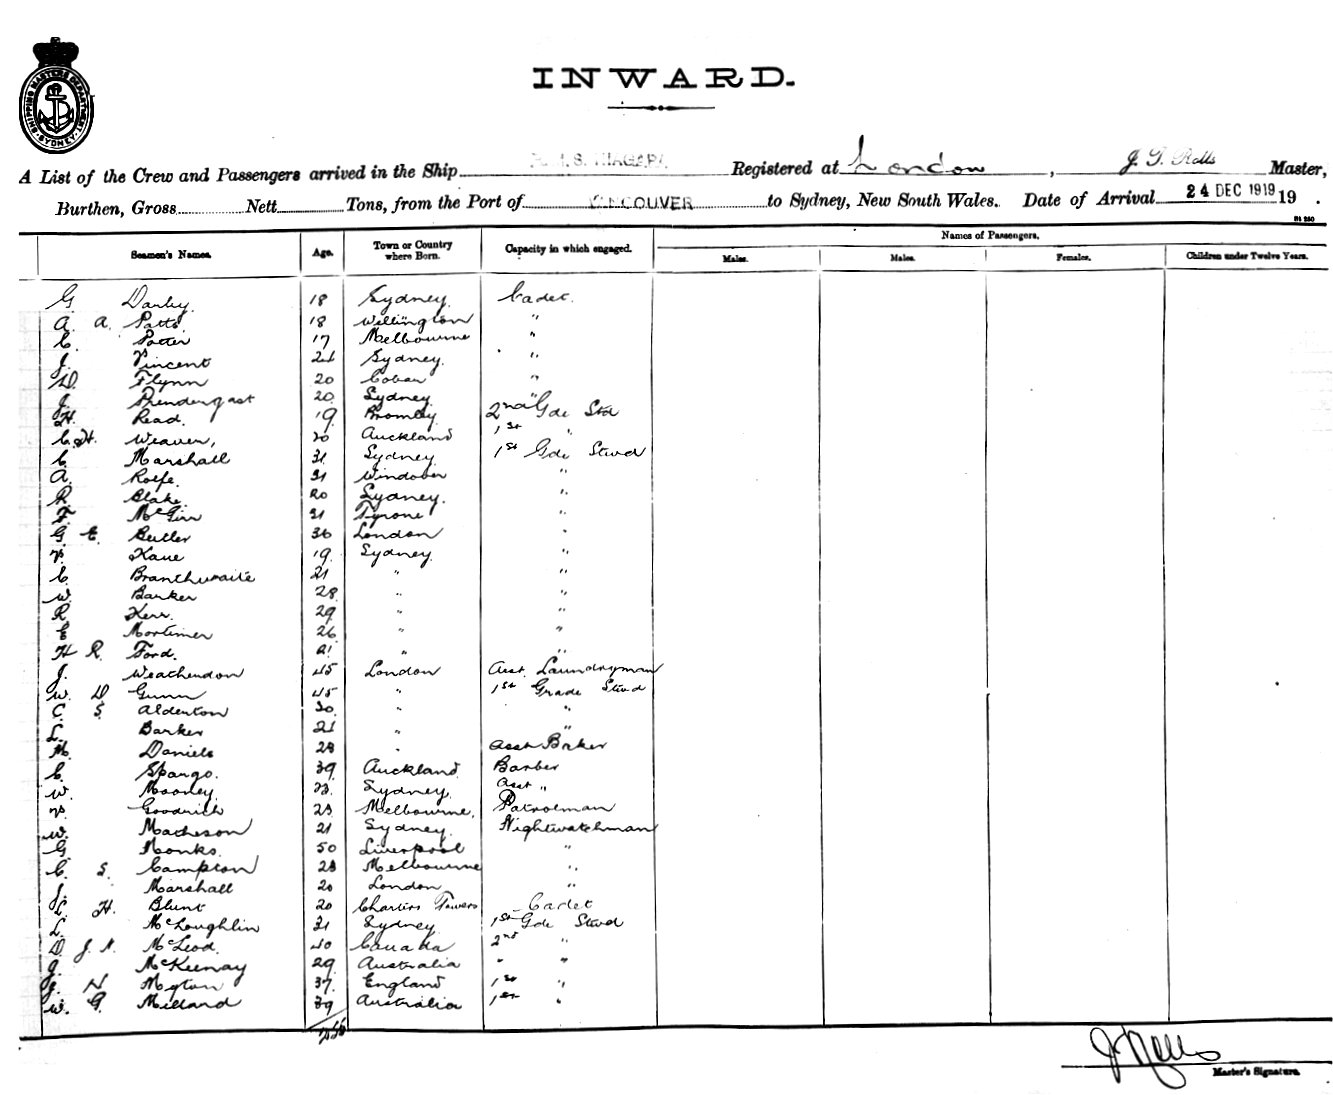 SHIPPING MASTER'S DEPARTMENT SYDNEY
INWARD.
A List of the Crew and Passengers arrived in the Ship R.M.S. NIAGARA Registered at London, J. T. Rolls Master,
Burthen, Gross Nett Tons, from the Port of VANCOUVER to Sydney, New South Wales. Date of Arrival 24 DEC 1919 19 .
Seamen's Names. Age. Town or Country where Born. Capacity in which engaged. Names of Passengers.
Males. Males. Females. Children under Twelve Years.
G Danby 18 Sydney. Cadet.
A. A. Patts. 18 Wellington "
C. Potter 17 Melbourne "
J. Vincent 21 Sydney. "
D. Flynn 20 Cobar "
J. Prendergast 20 Sydney. "
H. Read. 19 Bromley. 2nd Gde Std
C. H. Weaver, 20 Auckland 1st "
C. Marshall 31 Sydney. 1st Gde Stwd
A. Rolfe. 31 "
R. Blake. 20 Sydney. "
F. McGinn 21 Tyrone "
G E. Butler 36 London "
V. Kane 19 Sydney. "
C. Branthwaite 21 " "
W. Barker 28 " "
R. Kerr. 29 " "
C Mortimer 26 " "
H R. Ford. 21 " "
J. Weathendon 45 London Asst. Laundryman
W. D Gunn 45 " 1st Grade Stwd
C. S. Alderton 30 " "
L. Barker 21 " "
M. Daniels 28 " Asst Baker
C. Spargo. 39 Auckland Barber
W. Mooney 23 Sydney. Asst "
V. Goodrich 23 Melbourne. Patrolman
W. Matheson 21 Sydney. Nightwatchman
G Monks. 50 Liverpool "
C. S. Campton 28 Melbourne "
J. Marshall 20 London "
L. H. Blunt 20 Charters Towers Cadet
L. McLoughlin 31 Sydney 1st Gde Stwd
D. J. N. McLeod. 40 Canada 2nd "
J. McKeenay 29 Australia " "
J. N. Myton 37 England 1st "
W. G. Millard 39 Australia 1st "
J Rolls
Master's Signature.